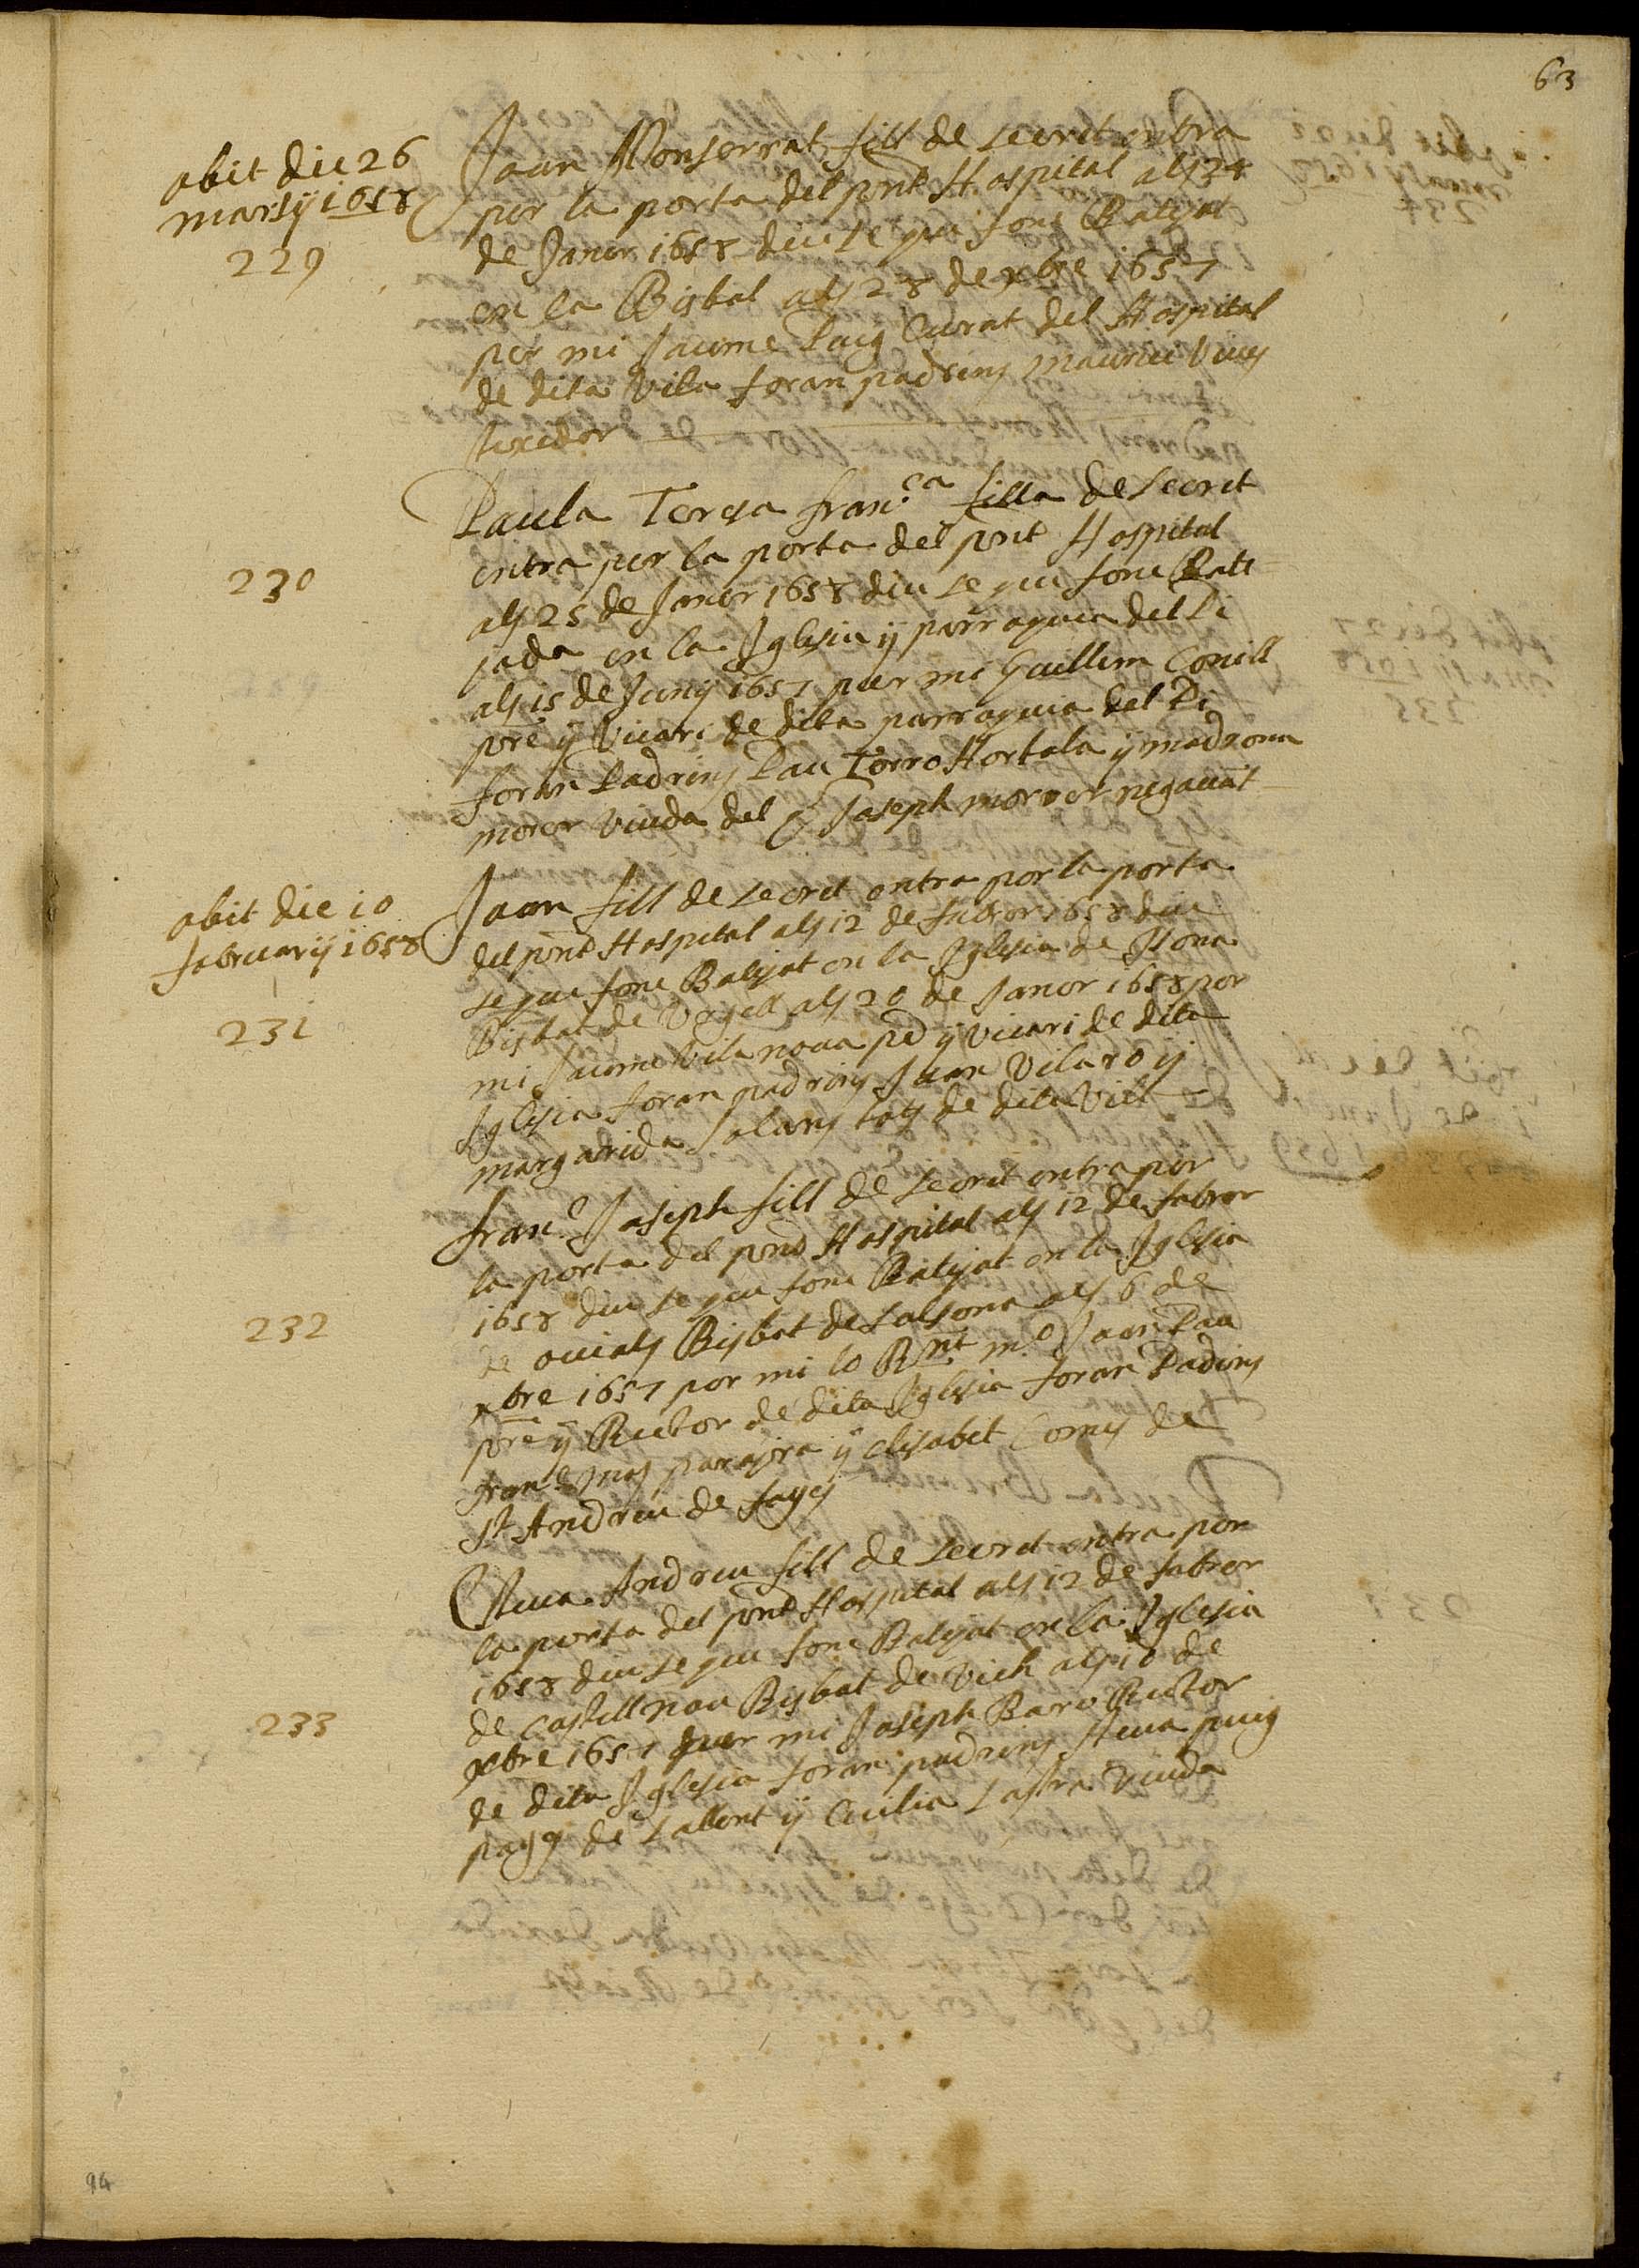 63
obit die 26
martij 1658
229
Joan Monserrat fill de secret entra
per la porta del pnt Hospital als 24
de Janer 1658 diu se que fonc Batejat
en la Bisbal als 28 de xbre 1657
per mi Jaume Puig Curat del Hospital
de dita Vila foran padrins Maurici Vives
texidor
230
Paula Teresa fran.ca filla de secret
entra per la porta del pnt Hospital
als 25 de Janer 1658 diu se que fonc Bate
jada en la Iglesia ÿ parroquia del Pi
als 15 de Juny 1657 per mi Guillem Conill
pre ÿ Vicari de dita parroquia del Pi
foran Padrins Pau Torro Hortola ÿ madrona
morer viuda del q Joseph morer negociat
obit die 10
februarij 1658
231
Joan fill de secret entra per la porta
del pnt Hospital als 12 de febrer 1658 diu
se que fonc Batejat en la Iglesia de
Bisbat de Vrgell als 20 de Janer 1658 per
mi Jaume Vilanova pe ÿ Vicari de dita
Iglesia foran padrins Juan Vilaro ÿ
margarida Solans tots de dita Vila
232
fran.co Joseph fill de secret entra per
la porta del pnt Hospital als 12 de febrer
1658 diu se que fonc Batejat en la Iglesia
de ouials Bisbat de Salsona als 6 de
xbre 1657 per mi lo Rnt m.o Joan Pau
pre ÿ Rector de dita Iglesia foran Padrins
fran.co mas ÿ elisabet Comes de
St Andreu de
233
Andreu fill de secret entra per
la porta del pnt Hospital als 12 de febrer
1658 diu se que fonc Batejat en la Iglesia
de Castellnou Bisbat de Vich als 10 de
xbre 1657 per mi Joseph Baro Rector
de dita Iglesia foran padrins Steva puig
pages de Sallent ÿ Cicilia Viuda
94